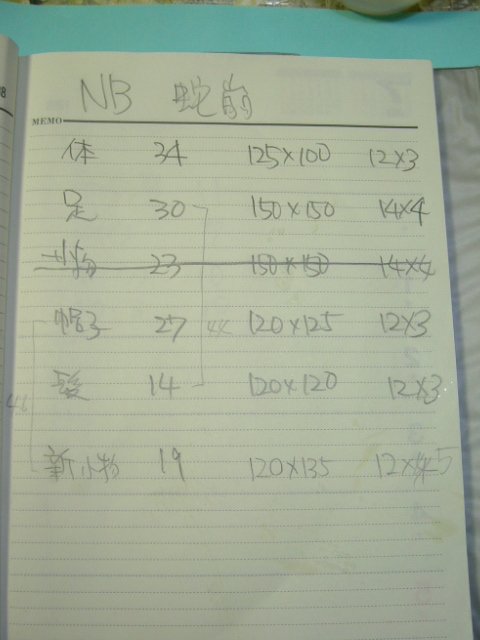 NB 蛇崩
MEMO
体 34 125×100 12×3
足 30 150×150 14×4
小物 23 150×150 14×4
帽子 27 44 120×125 12×3
髪 14 120×120 12×3
46
新小物 19 120×135 12×5